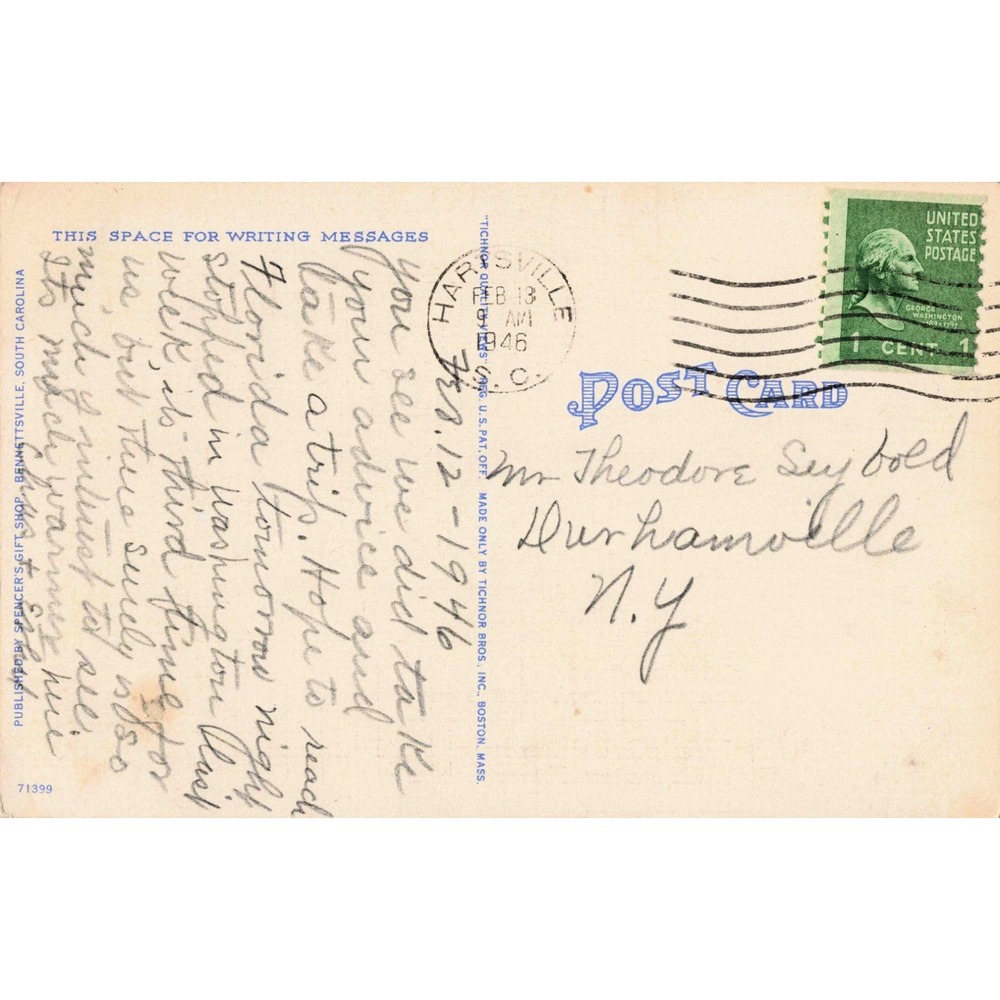 THIS SPACE FOR WRITING MESSAGES
Feb. 12 - 1946
You see we did take
your advice and
take a trip. Hope to reach
Florida tomorrow night
stopped in Washington last
week, its third time for
us, but there surely is so
much of interest to see.
Its much warmer here
PUBLISHED BY SPENCER'S GIFT SHOP, BENNETTSVILLE, SOUTH CAROLINA
71399
"TICHNOR QUALITY VIEWS" REG. U. S. PAT. OFF. MADE ONLY BY TICHNOR BROS. INC., BOSTON, MASS.
HARTSVILLE
FEB 13
9 AM
1946
S. C.
UNITED
STATES
POSTAGE
GEORGE
WASHINGTON
1789-1797
1 CENT 1
POST CARD
Mr Theodore Seybold
Durhamville
N.Y